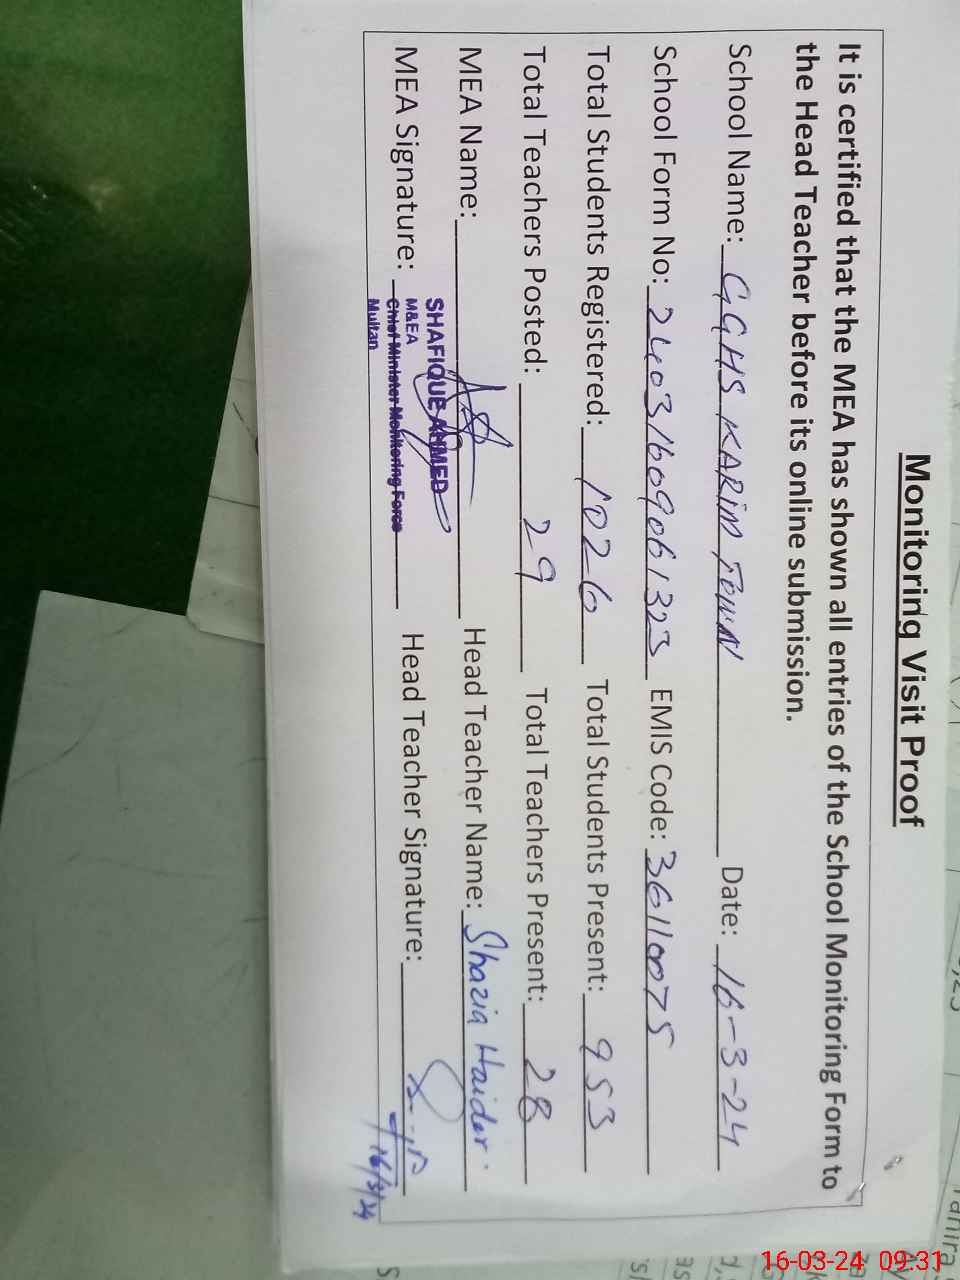 Monitoring Visit Proof
It is certified that the MEA has shown all entries of the School Monitoring Form to
the Head Teacher before its online submission.
School Name: GGHS KARIM TOWN Date: 16-3-24
School Form No: 24031609061323 EMIS Code: 36110075
Total Students Registered: 1026 Total Students Present: 953
Total Teachers Posted: 29 Total Teachers Present: 28
MEA Name: Head Teacher Name: Shazia Haider
SHAFIQUE AHMED
M&EA
MEA Signature: Chief Minister Monitoring Force Head Teacher Signature:
Multan
16/3/24
16-03-24 09:31